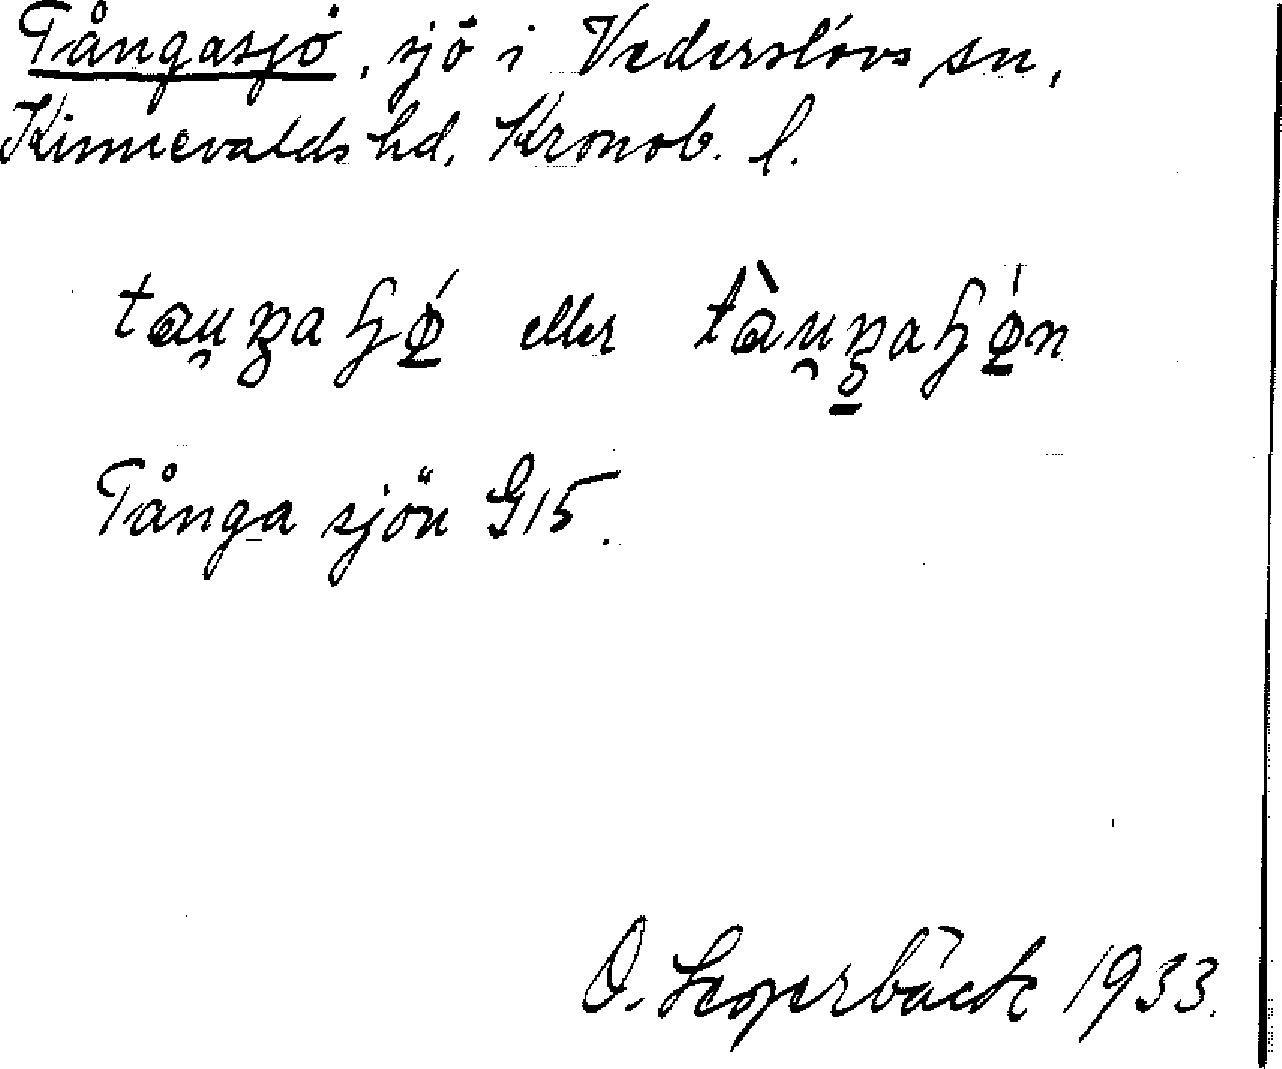 Tångasjö, sjö i Vederslövs sn,
Kinnevalds hd, Kronob. l.
eller
Tånga sjön G15.
O. 1933.